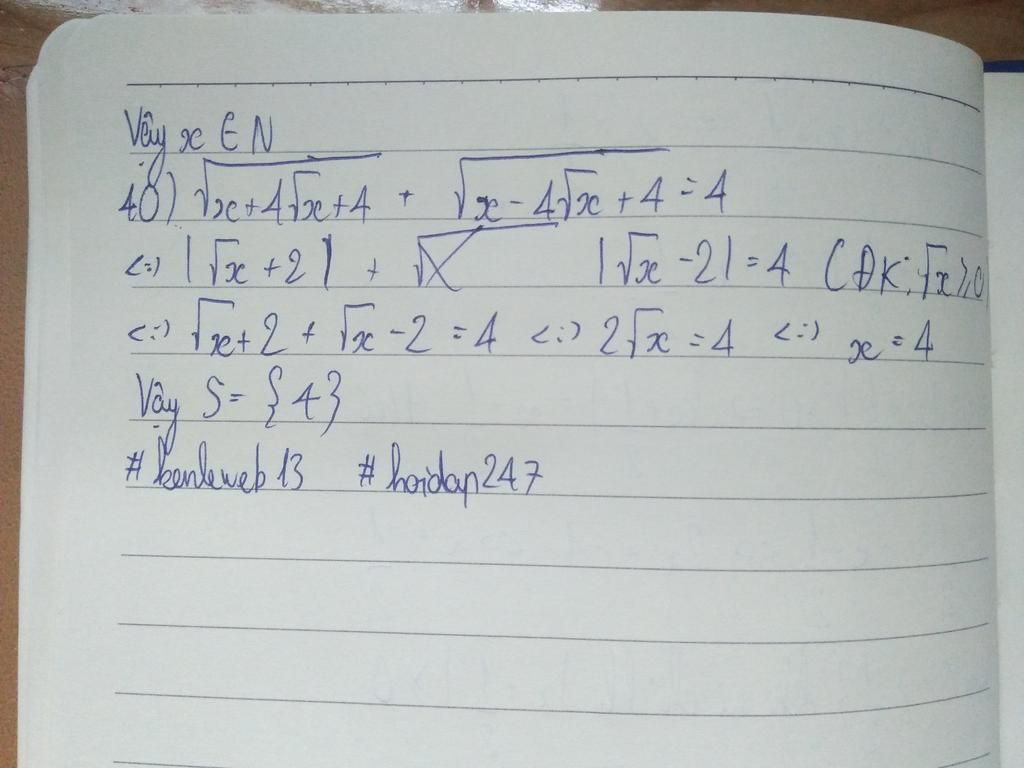 Vậy x ∈ N
40) √(x+4√x+4) + √(x-4√x+4) = 4
<=> |√x+2| + |√x-2| = 4 (ĐK: √x ≥ 0
<=> √x+2 + √x-2 = 4 <=> 2√x = 4 <=> x = 4
Vậy S = {4}
#kenleweb13 #hoidap247